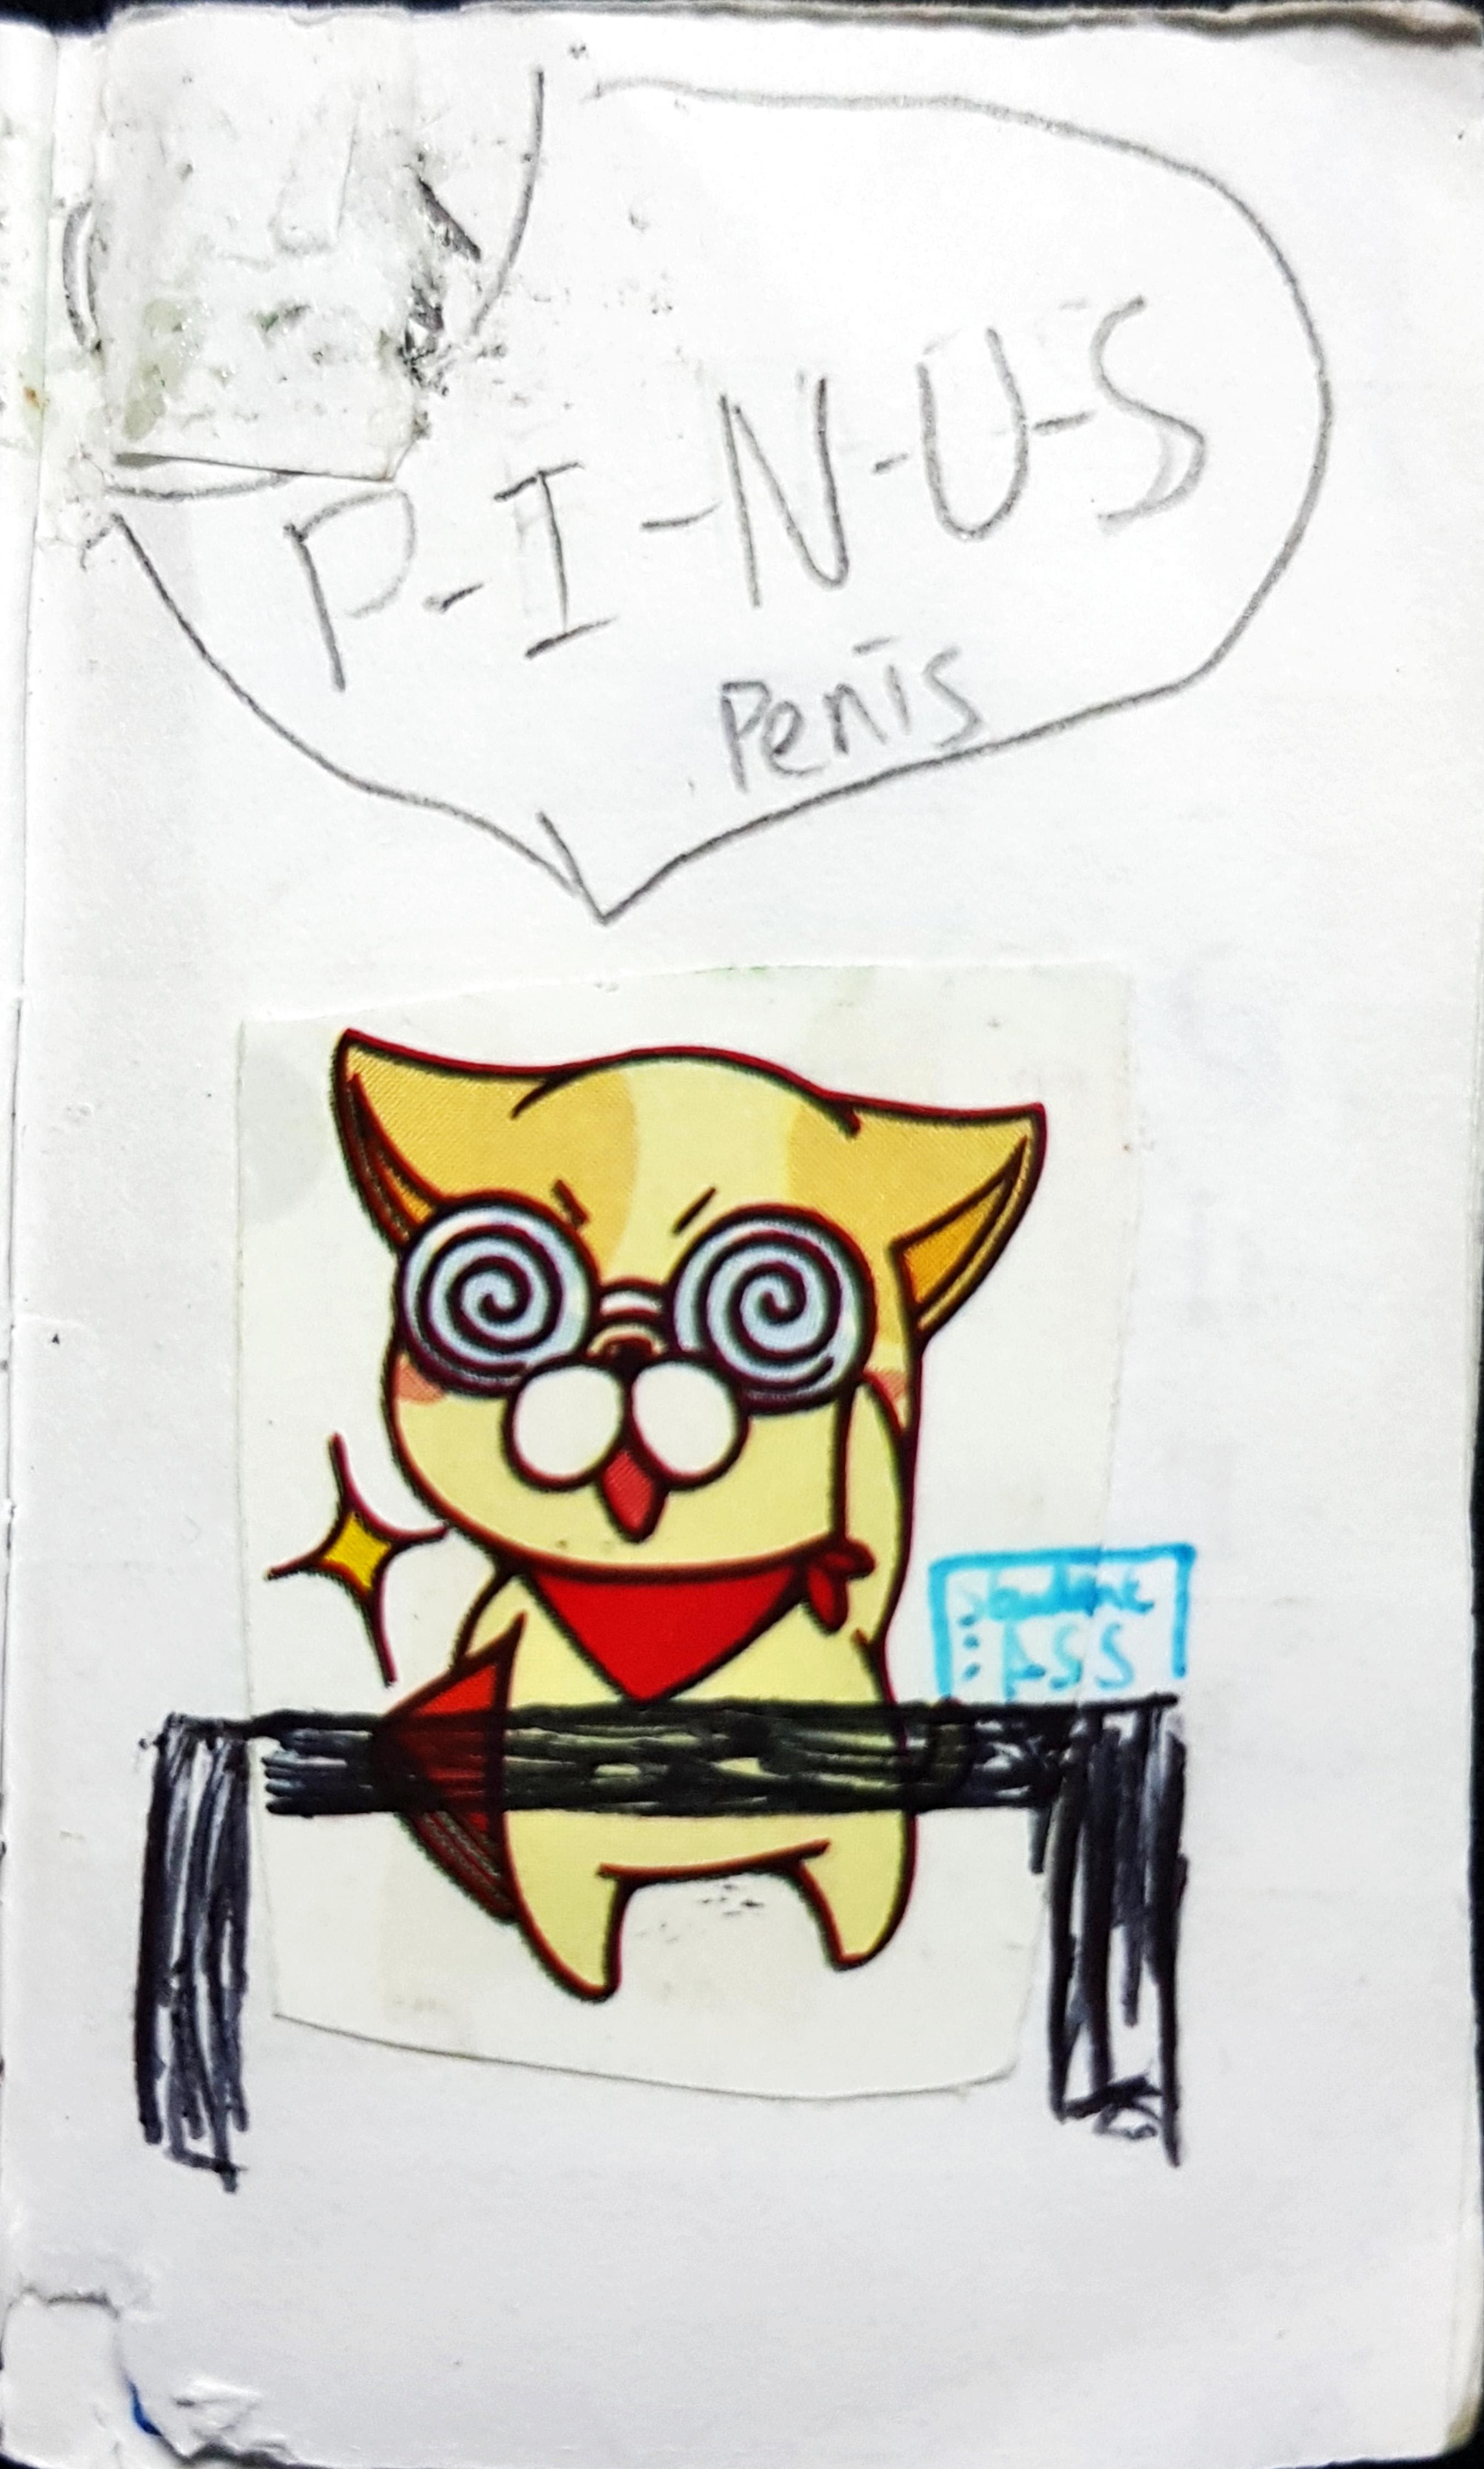 P-I-N-U-S
Penis
Student
: ASS